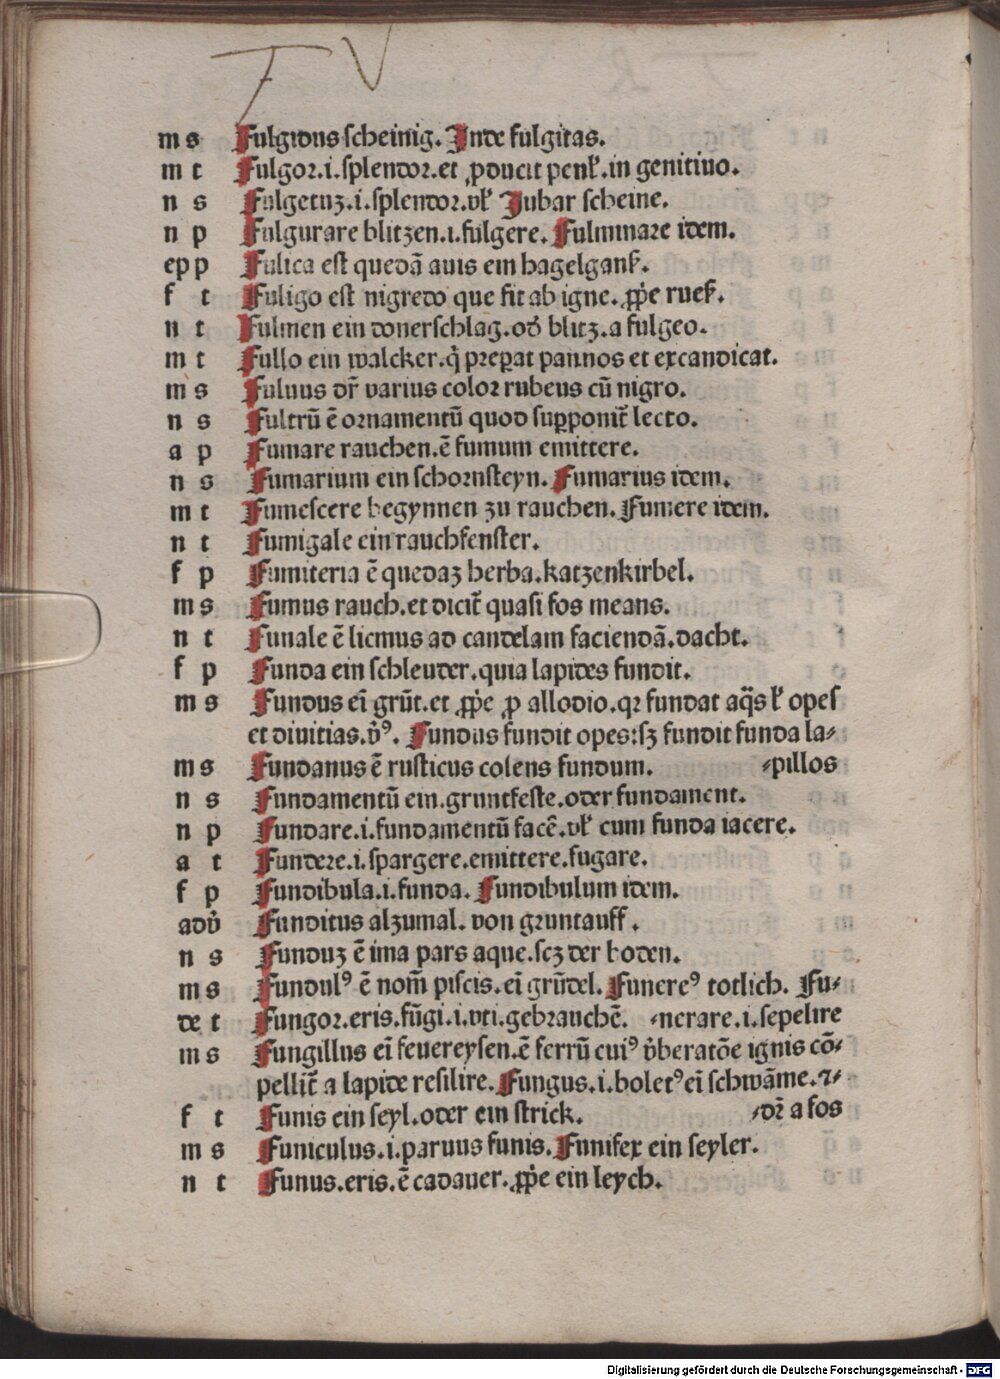 F V
m s Fulgidus scheinig. Inde fulgitas.
m t Fulgor.i.splendor.et ꝓducit penl̕.in genitiuo.
n s Fulgetuꝫ.i.splendor.vl̕ Iubar scheine.
n p Fulgurare blitzen.i.fulgere. Fulminare idem.
epp Fulica est quedā auis ein hagelganß.
f t Fuligo est nigredo que fit ab igne.ꝓp̄e rueß.
n t Fulmen ein donerschlag.od̕ blitz.a fulgeo.
m t Fullo ein walcker.q̇ prep̲at pannos et excandicat.
m s Fuluus dr̄ varius color rubeus cū nigro.
n s Fultrū ē ornamentū quod supponit̄ lecto.
a p Fumare rauchen.ē fumum emittere.
n s Fumarium ein schornsteyn. Fumarius idem.
m t Fumescere begynnen zu rauchen. Fumere idem.
n t Fumigale ein rauchfenster.
f p Fumiteria ē quedaꝫ herba.katzenkirbel.
m s Fumus rauch.et dicit̄ quasi fos means.
n t Funale ē licmus ad candelam faciendā.dacht.
f p Funda ein schleuder.quia lapides fundit.
m s Fundus ei̅ grūt.et ꝓp̄e ꝓ allodio.qꝛ fundat aq̄s l̕ opes
et diuitias.v̕ꝰ. Fundus fundit opes:sꝫ fundit funda la⸗
m s Fundanus ē rusticus colens fundum. ⸗pillos
n s Fundamentū ein.gruntfeste.oder fundament.
n p Fundare.i.fundamentū facē.vl̕ cum funda iacere.
a t Fundere.i.spargere.emittere.fugare.
f p Fundibula.i.funda. Fundibulum idem.
adv̕ Funditus alzumal. von gruntauff.
n s Funduꝫ ē ima pars aque.scꝫ der boden.
m s Fundulꝰ ē nom̄ piscis.ei̅ grūdel. Funereꝰ totlich. Fu⸗
de t Fungor.eris.fūgi.i.vti.gebrauchē. ⸗nerare.i.sepelire
m s Fungillus ei̅ feuereysen.ē ferrū cuiꝰ v̕beratōe ignis cō⸗
pellit̄ a lapide resilire. Fungus.i.boletꝰ ei̅ schwāme.⁊⸗
f t Funis ein seyl.oder ein strick. ⸗dr̄ a fos
m s Funiculus.i.paruus funis. Funifex ein seyler.
n t Funus.eris.ē cadauer.ꝓp̄e ein leych.
Digitalisierung gefördert durch die Deutsche Forschungsgemeinschaft - DFG